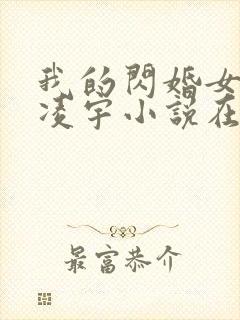 我的閃婚女
凌宇小說在
最富恭介